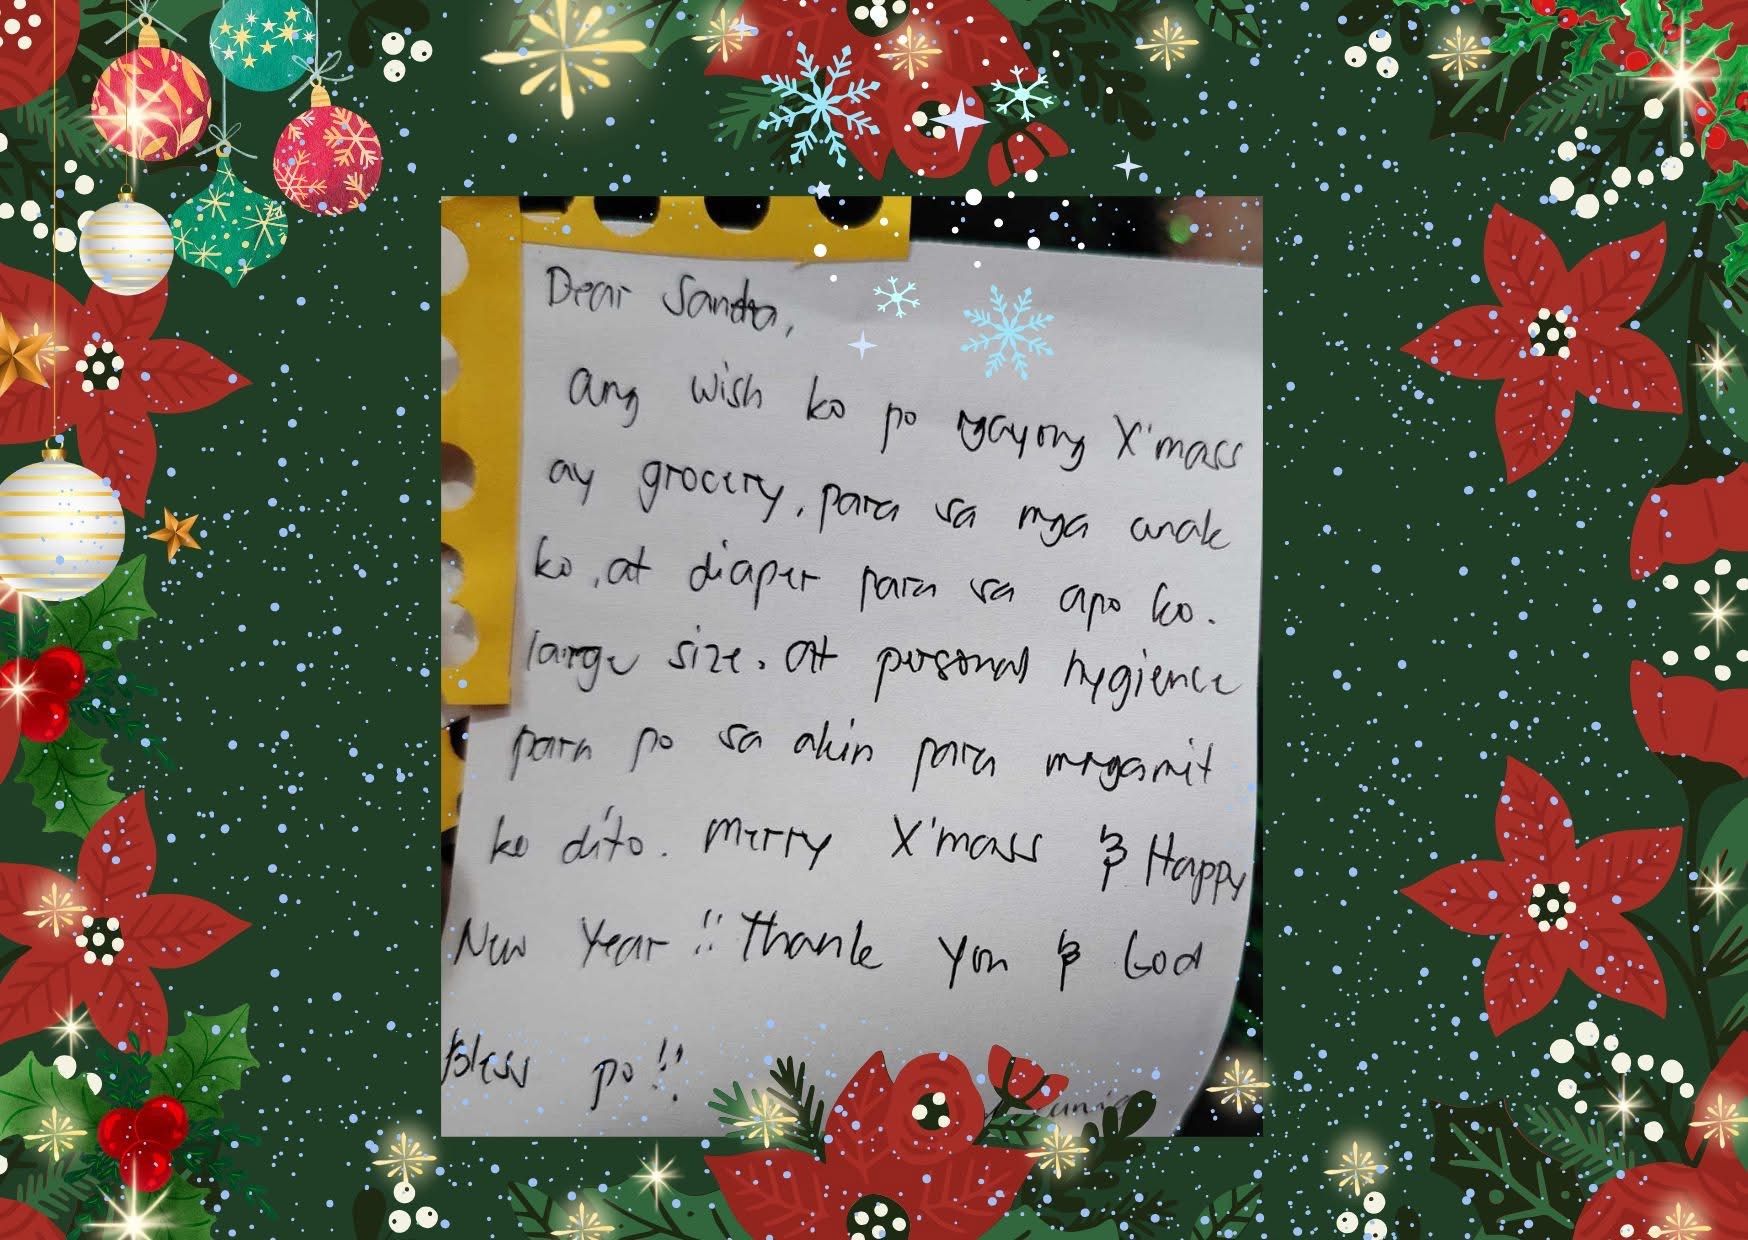 Dear Santa,
ang wish ko po ngayong X'mass
ay grocery, para sa mga anak
ko, at diaper para sa apo ko.
large size. at personal hygience
para po sa akin para magamit
ko dito. Merry X'mass & Happy
New Year!! Thank you & God
Bless po!!